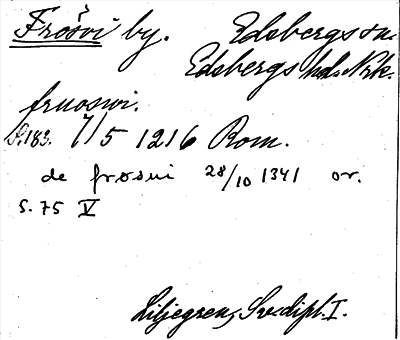 Frösvi by. Edsbergs sn.
Edsbergs hd. Nrk.
fruoswi.
S. 183. 7/5 1216 Rom.
de frøsui 28/10 1341 or.
S. 75 V
Liljegren, Sv. dipl. I.